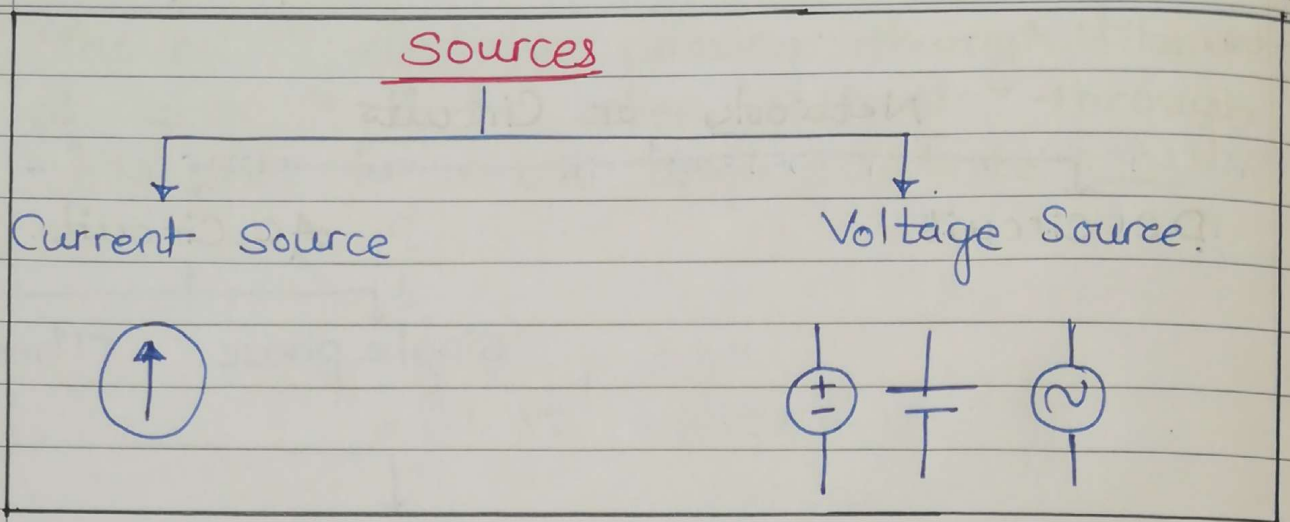 Sources
Current Source
Voltage Source.
+
-